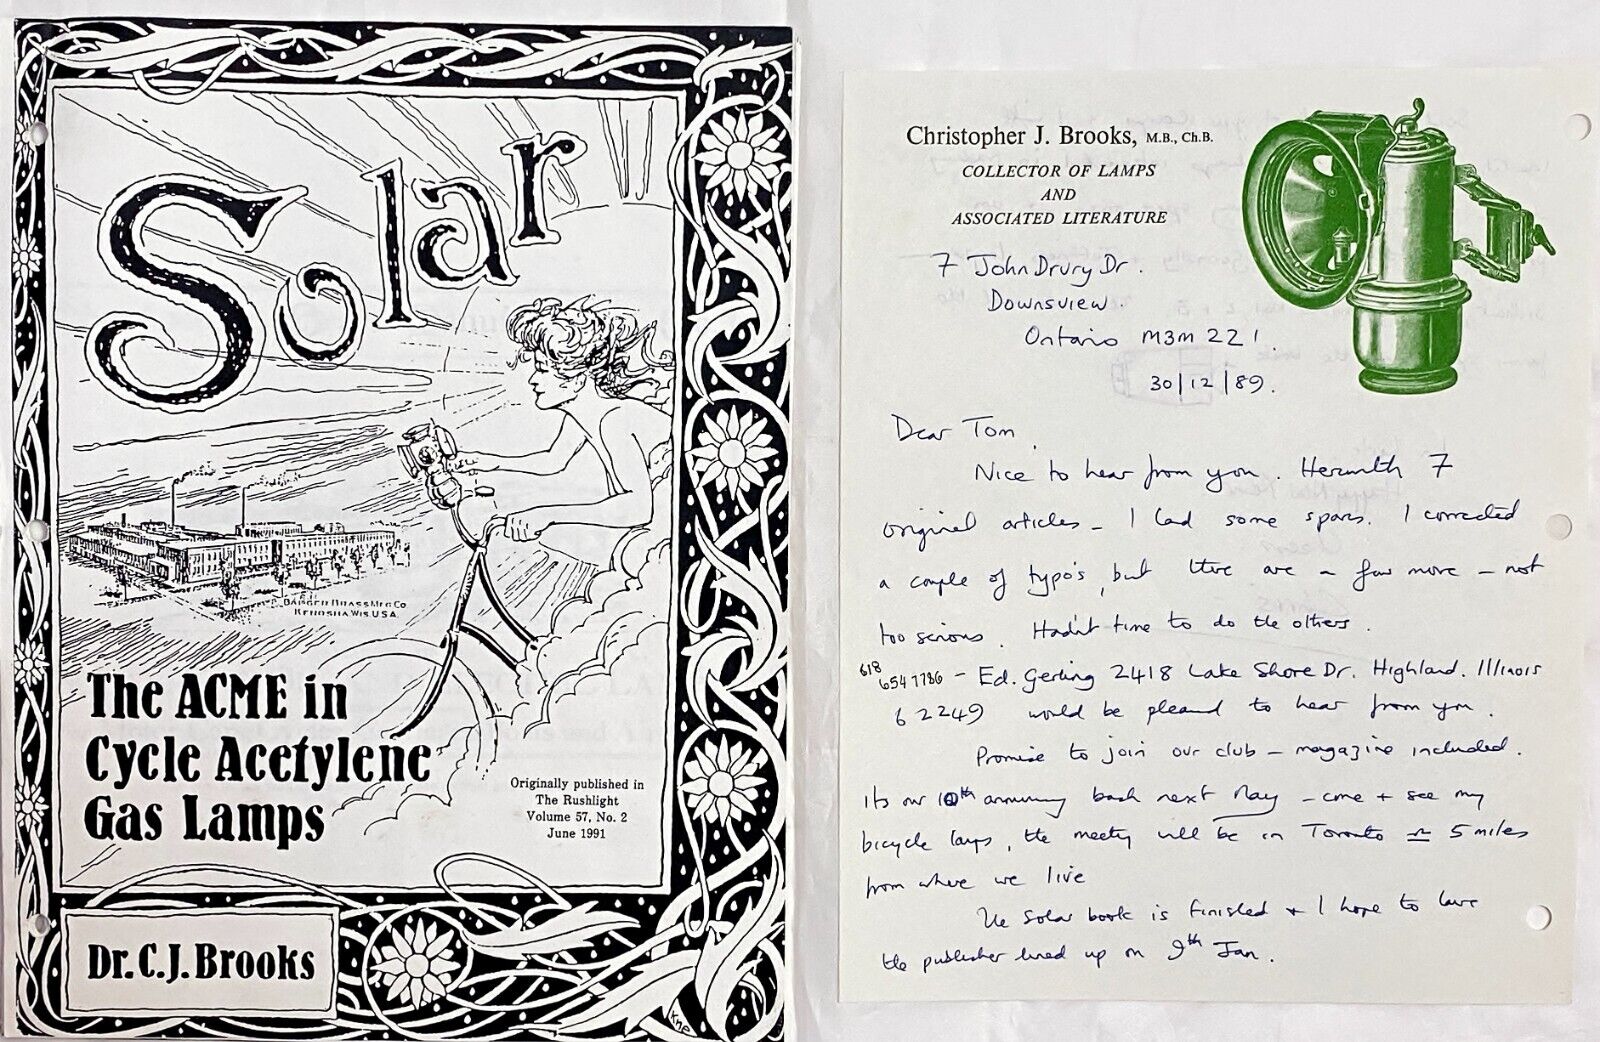 Solar
BADGER BRASS MFG CO
KENOSHA WIS. U.S.A.
The ACME in
Cycle Acetylene
Gas Lamps
Originally published in
The Rushlight
Volume 57, No. 2
June 1991
Dr. C. J. Brooks
KMP
Christopher J. Brooks, M.B., Ch.B.
COLLECTOR OF LAMPS
AND
ASSOCIATED LITERATURE
7 John Drury Dr.
Downsview.
Ontario M3M 2Z1.
30/12/89.
Dear Tom,
Nice to hear from you. Herewith 7
original articles - I had some spars. I corrected
a couple of typo's, but there are a few more - not
too serious. Hadn't time to do the others.
618
654 7786 - Ed. Gerling 2418 Lake Shore Dr. Highland. Illinois
62249 would be pleased to hear from you.
Promise to join our club - magazine included.
Its our 10th anniversary bash next May - come + see my
bicycle lamps, the meeting will be in Toronto ≃ 5 miles
from where we live
The Solar book is finished + I hope to have
the publisher lined up on 9th Jan.